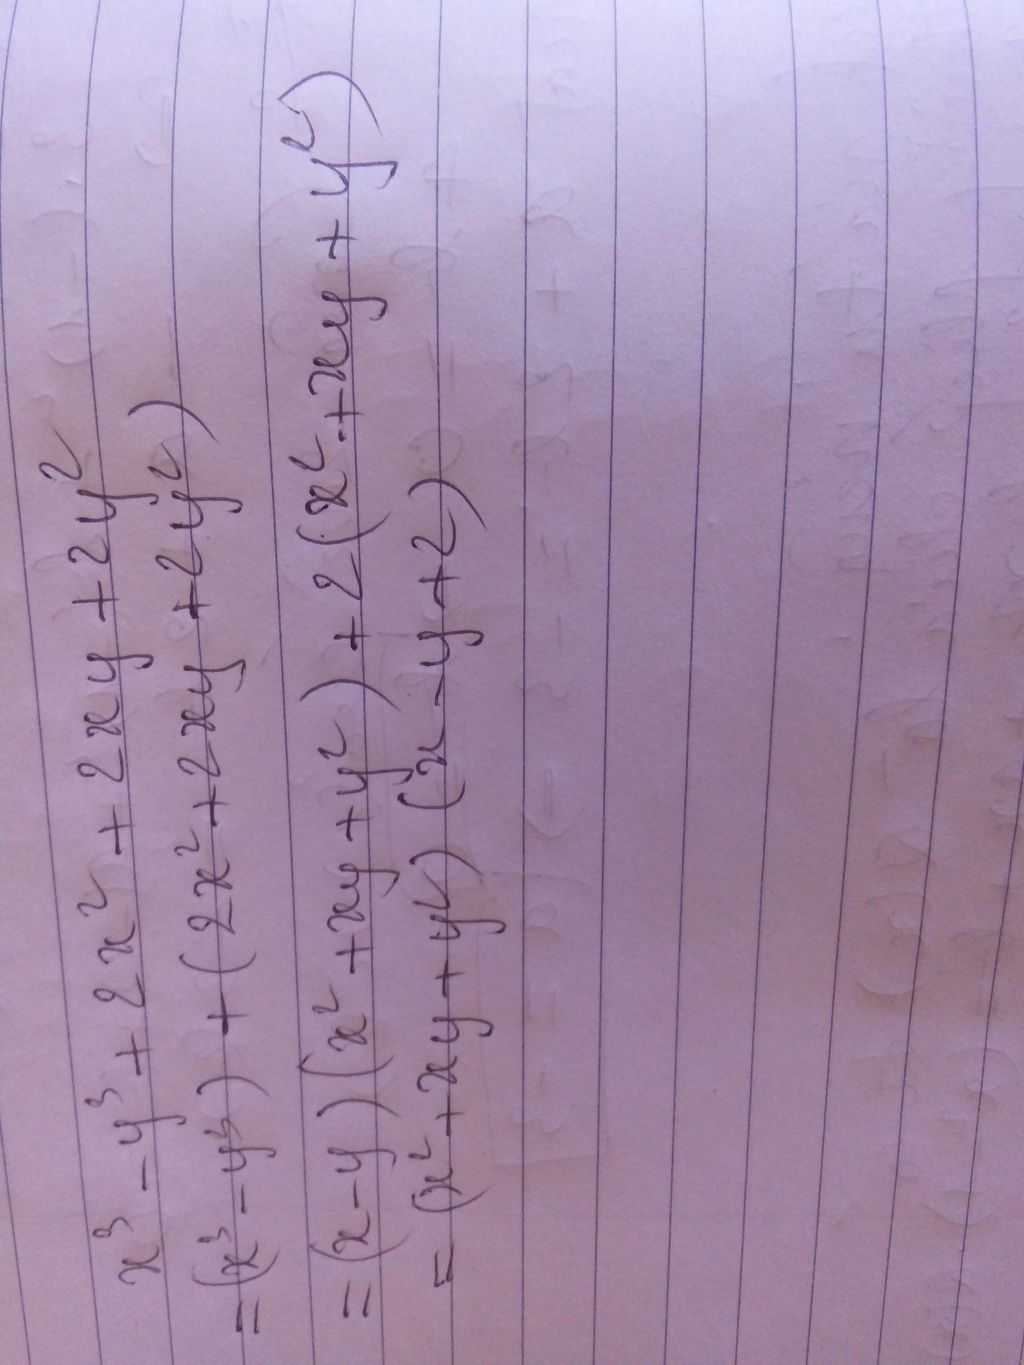 x³ - y³ + 2x² + 2xy + 2y²
= (x³ - y³) + (2x² + 2xy + 2y²)
= (x - y)(x² + xy + y²) + 2(x² + xy + y²)
= (x² + xy + y²)(x - y + 2)